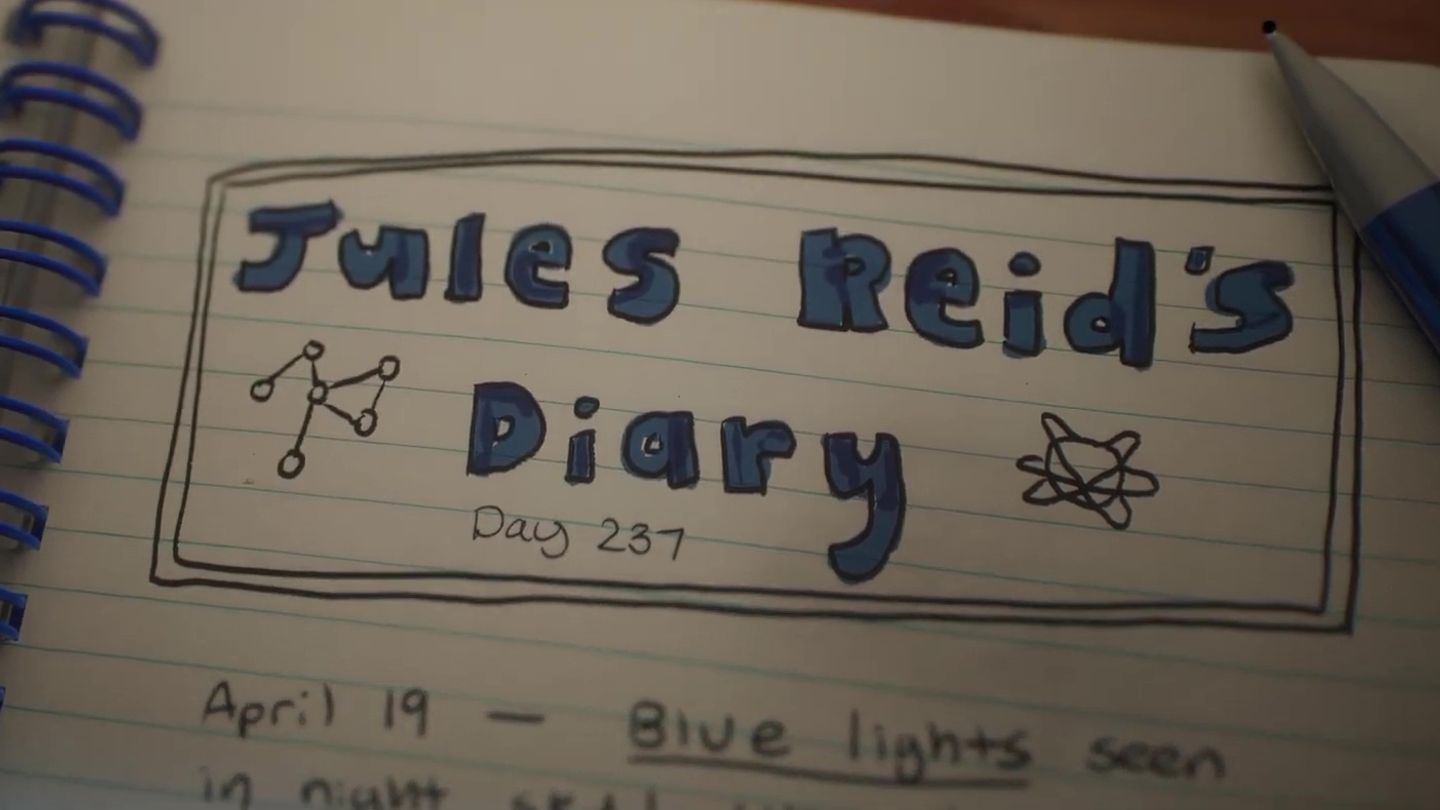 Jules Reid's
Diary
Day 237
April 19 — Blue lights seen
in night